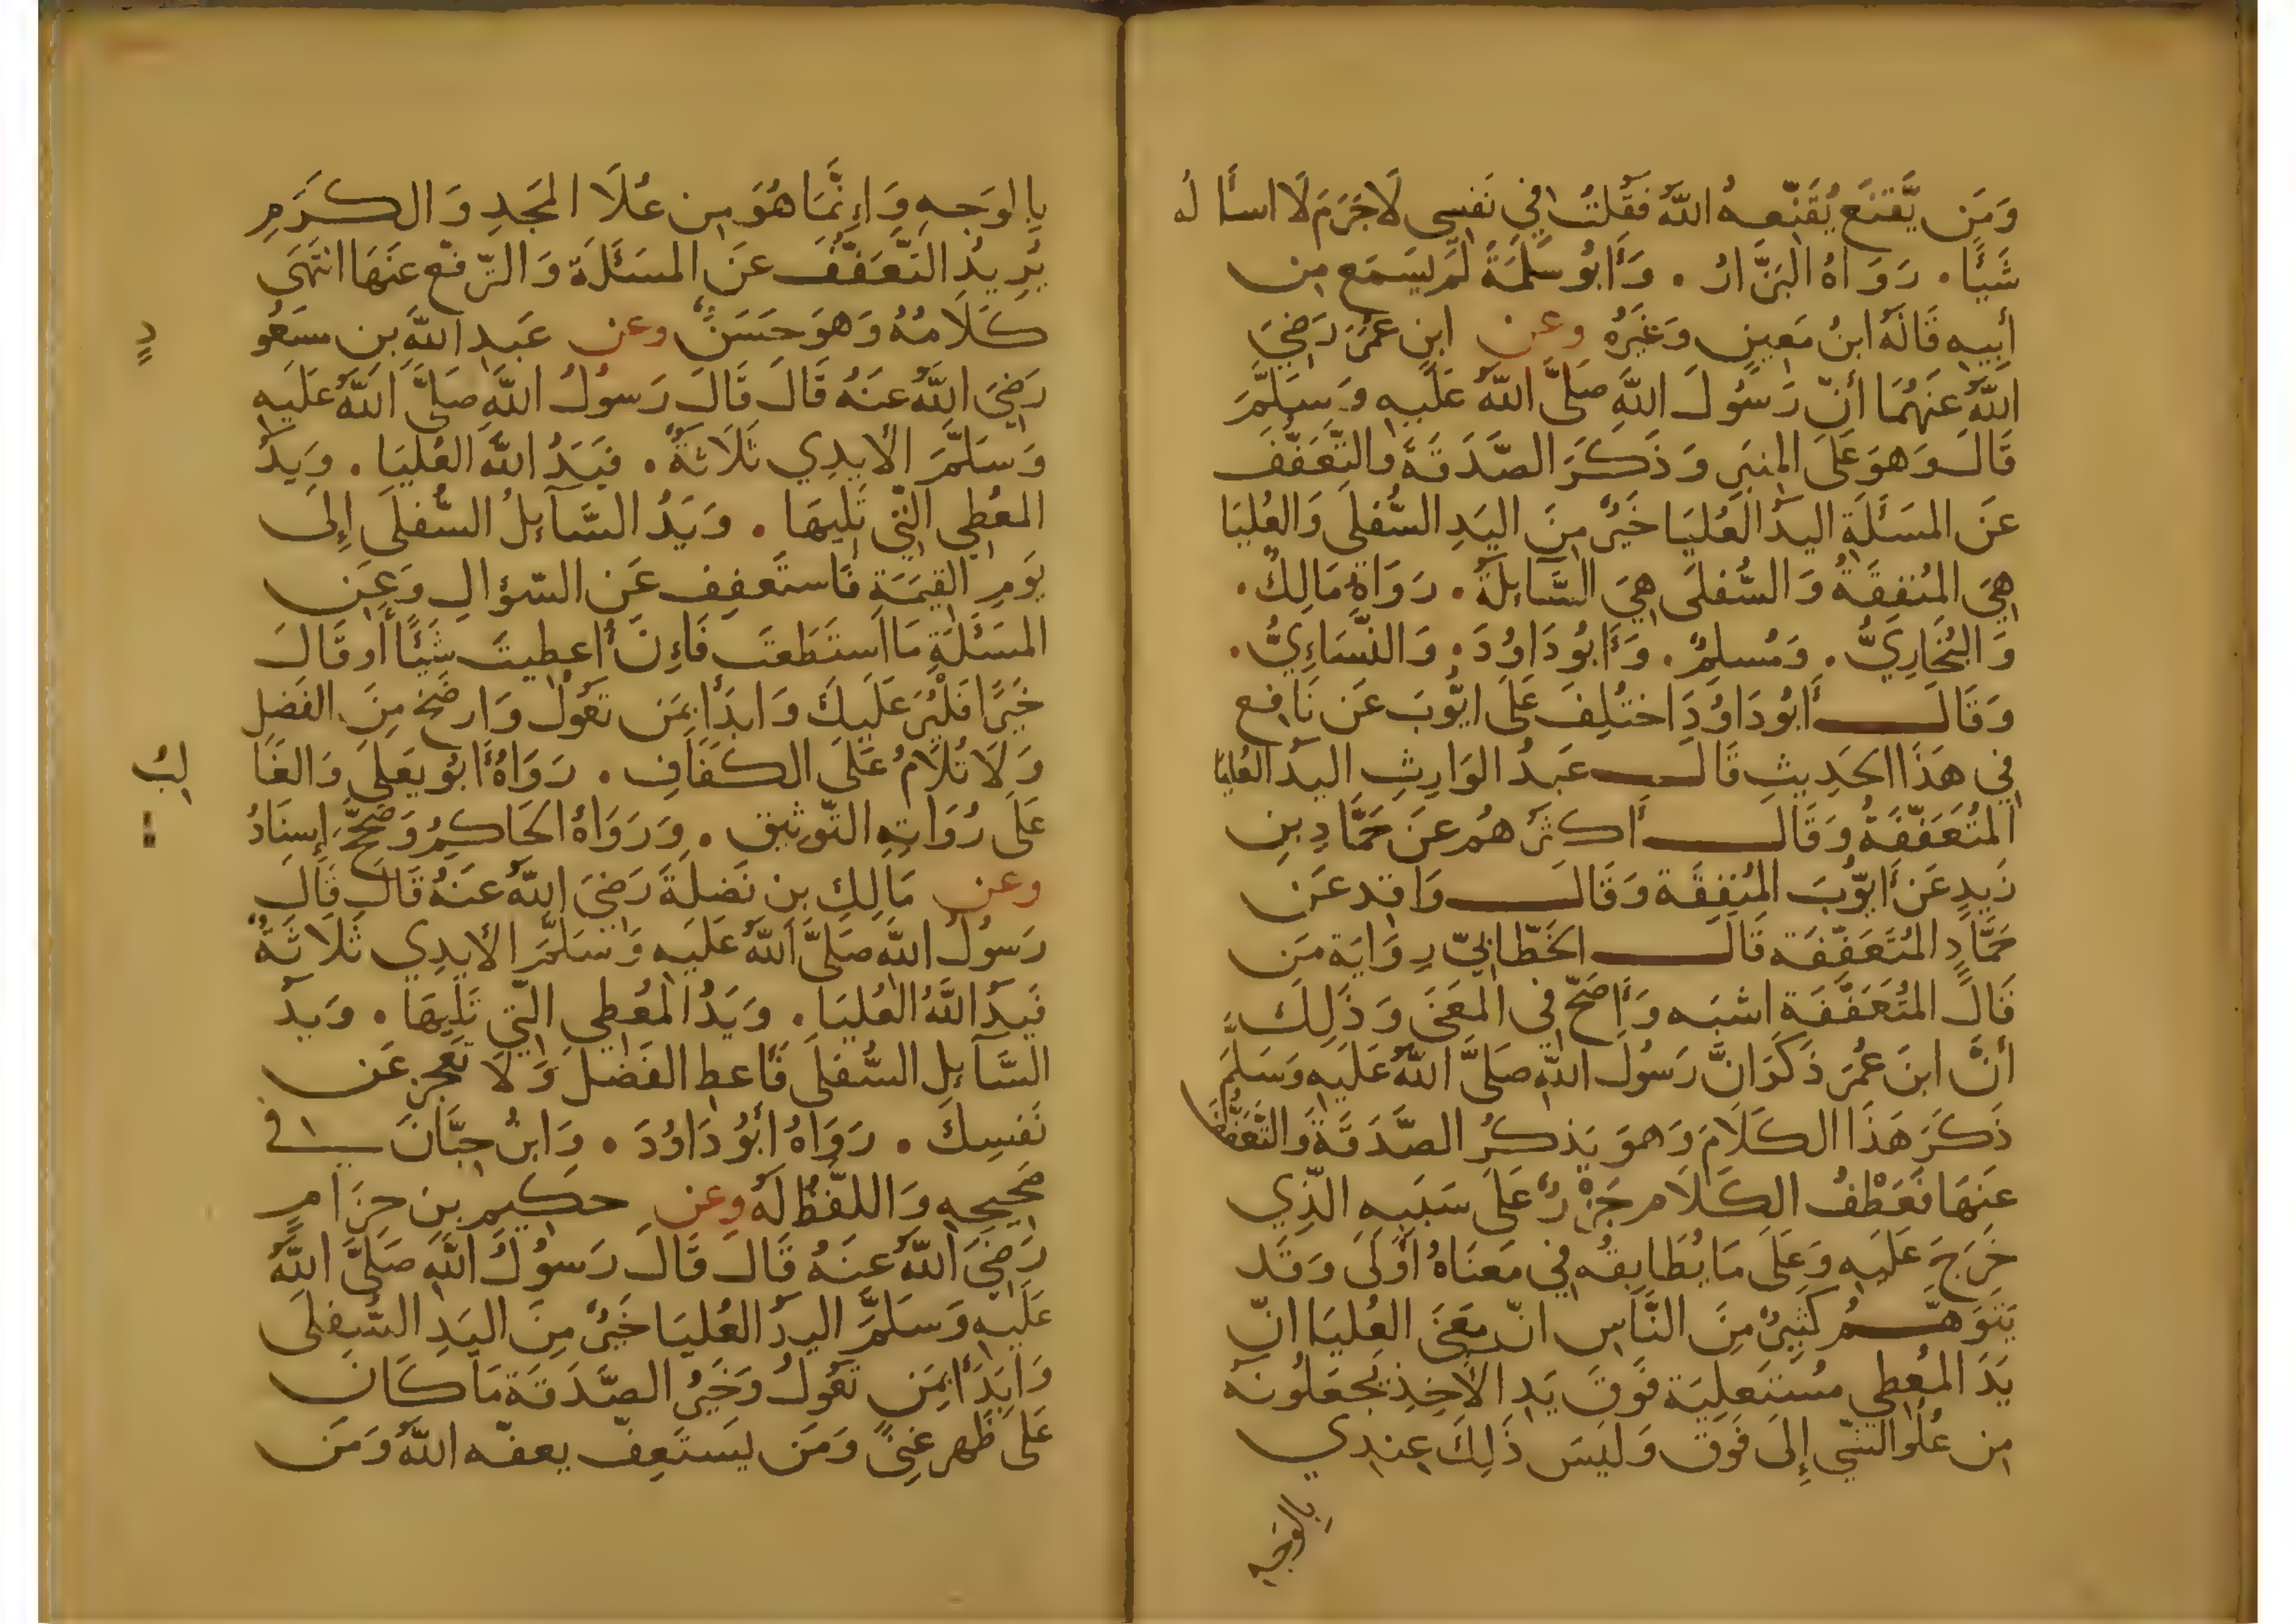 وَمَن يَّقنَع يُقَنِّعهُ اللَّهُ فَقُلتُ فِي نَفسِي لَاجَرَمَ لَا اسأَلُه
شَيئًا. رَوَاهُ البَزَّارُ. وَأَبُو سَلَمَةَ لَم يَسمَع مِن
أَبِيهِ قَالَهُ ابنُ مَعِينٍ وَغَيرُهُ وعن ابنِ عُمَرَ رَضِيَ
اللَّهُ عَنهُمَا أَنَّ رَسُولَ اللَّهِ صَلَّى اللَّهُ عَلَيهِ وَسَلَّمَ
قَالَ وَهوَ عَلَى المِنبَرِ وَذَكَرَ الصَّدَقَةَ وَالتَّعَفُّفَ
عَنِ المَسئَلَةِ اليَدُ العُليَا خَيرٌ مِنَ اليَدِ السُّفلَى وَالعُليَا
هِيَ المُنفِقَةُ وَالسُّفلَى هِيَ السَّائِلَةُ. رَوَاهُ مَالِكٌ.
وَالبُخَارِيُّ. وَمُسلِمٌ. وَأَبُو دَاوُدَ. وَالنَّسَاءِيُّ.
وَقَالَ أَبُو دَاوُدَ اختُلِفَ عَلَى ايُّوبَ عَن نَافِعٍ
فِي هَذَا الحَدِيثِ قَالَ عَبدُ الوَارِثِ اليَدُ العُليَا
المُتَعَفِّفَةُ وَقَالَ أَكثَرُهُم عَن حَمَّادِ بنِ
زَيدٍ عَن أَيُّوبَ المُنفِقَة وَقَالَ وَاقِد عَن
حَمَّادٍ المُتَعَفِّفَة قَالَ الخَطَّابِيّ رِوَايَة مَن
قَالَ المُتَعَفِّفَة اشبَه وَأَصَحّ فِي المَعنَى وَذَلِكَ
أَنَّ ابنَ عُمَرَ ذَكَرَ انَّ رَسُولَ اللَّهِ صَلَّى اللَّهُ عَلَيهِ وَسَلَّمَ
ذَكَرَ هَذَا الكَلَامَ وَهوَ يَذكُرُ الصَّدَقَةَ وَالتَّعَفُّفَ
عَنهَا فَعَطْفُ الكَلَامِ جَزْرٌ عَلَى سَبَبِهِ الَّذِي
خَرَجَ عَلَيهِ وَعَلَى مَا يُطَابِقُه فِي مَعنَاهُ أَولَى وَقَد
يَتَوَهَّمُ كَثِيرٌ مِنَ النَّاسِ انَّ مَعنَى العُليَا انَّ
يَدَ المُعطِي مُستَعلِيَة فَوقَ يَدِ الاخِذِ يَجعَلُونَه
مِن عُلُو الشَّي إِلَى فَوق وَلَيسَ ذَلِكَ عِندِي
بالوجه
بِالوَجهِ وَإِنَّمَا هُوَ مِن عُلَا المَجدِ وَالكَرَمِ
يُرِيدُ التَّعَفُّفَ عَنِ المَسئَلَة وَالتَّرفّع عَنهَا انتَهَى
كَلَامُهُ وَهوَ حَسَنٌ وعن عَبدِ اللَّهِ بنِ مسعُو
دٍ
رَضِيَ اللَّهُ عَنهُ قَالَ قَالَ رَسُولُ اللَّهِ صَلَّى اللَّهُ عَلَيهِ
وَسَلَّمَ الأَيدِي ثَلَاثَةٌ. فَيَدُ اللَّهِ العُليَا. وَيَدُ
المُعطِي الَّتِي تَلِيهَا. وَيَدُ السَّآئِلُ السُّفلَى إِلَى
يَومِ القِيَمَةِ فَاستَعفِف عَنِ السّؤالِ وَعَن
المَسئَلَةِ مَا استَطَعتَ فَإِن أُعطِيتَ شَيئًا أَو قَالَ
خَيرًا فَلْيُرَ عَلَيكَ وَابدَأ بِمَن تَعُولُ وَارضَخ مِنَ الفَضلِ
وَلَا تُلَامُ عَلَى الكَفَافِ. رَوَاهُ أَبُو يَعلَى وَالغَا
لِبُ
عَلَى رُوَاتِهِ التَّوثِيق. وَرَوَاهُ الحَاكِمُ وَصَحَّحَ إِسنَادُ
وعن مَالِكِ بنِ نَضلَةَ رَضِيَ اللَّهُ عَنهُ قَالَ قَالَ
رَسُولُ اللَّهِ صَلَّى اللَّهُ عَلَيهِ وَسَلَّمَ الأَيدِي ثَلَاثَةٌ
فَيَدُ اللَّهِ العُليَا. وَيَدُ المُعطِي الَّتِي تَلِيهَا. وَيَدُ
السَّآئِلِ السُّفلَى فَأَعطِ الفَضلَ وَلَا تَعجِز عَن
نَفسِكَ. رَوَاهُ أَبُو دَاوُدَ. وَابنُ حِبَّانَ في
صَحِيحِهِ وَاللَّفظُ لَهُ وعن حَكِيمِ بنِ حِزَامٍ
رَضِيَ اللَّهُ عَنهُ قَالَ قَالَ رَسُولُ اللَّهِ صَلَّى اللَّهُ
عَلَيهِ وَسَلَّمَ اليَدُ العُليَا خَيرٌ مِنَ اليَدِ السُّفلَى
وَابدَأ بِمَن تَعُولُ وَخَيرُ الصَّدَقَة مَا كَانَ
عَلَى ظَهرِ غِنًى وَمَن يَستَعِفّ يعفّه اللَّهُ وَمَن